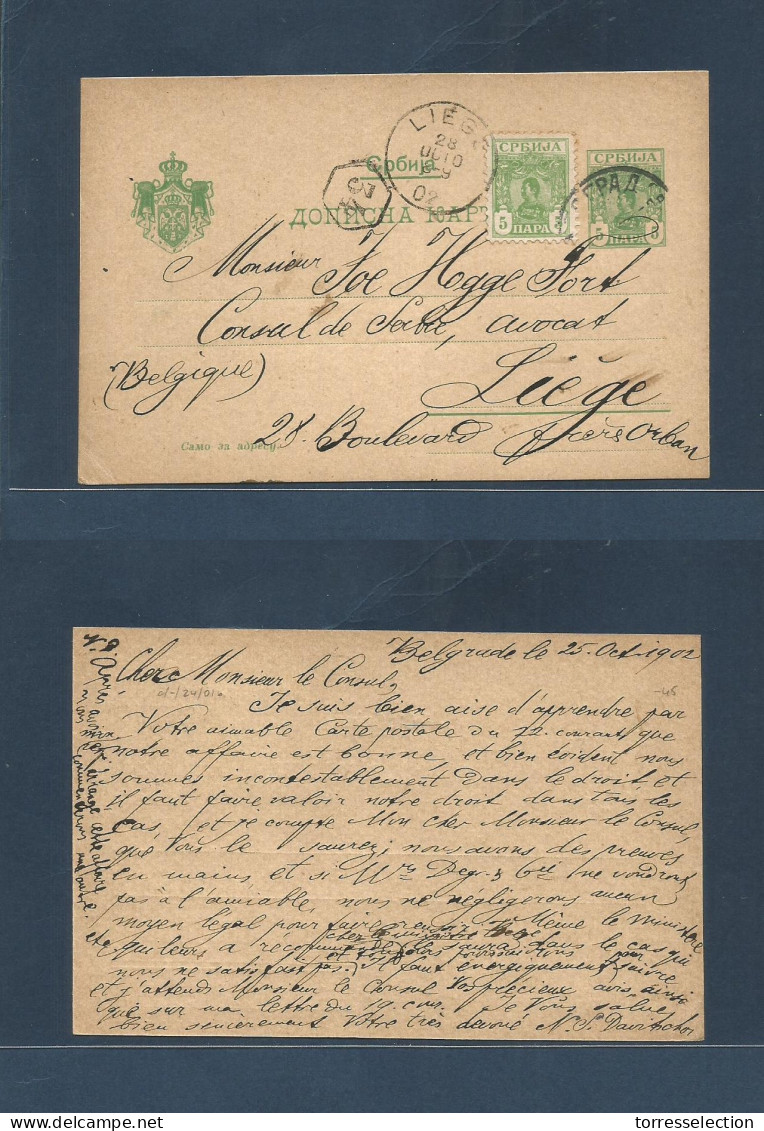 LIEG
28
OCT
02
Србија
СРБИЈА
5 ПАРА 5
ДОПИСНА КАР
Monsieur Joe Hogge Fort
Consul de Serbie, avocat
(Belgique) Liége
28. Boulevard frère Orban
Само за адресу.
Belgrade le 25. Oct. 1902
Cher Monsieur le Consul,
Je suis bien aise d'apprendre par
Votre aimable Carte postale du 22. courant que
notre affaire est bonne, et bien évident nous
sommes incontestablement dans le droit, et
il faut faire valoir notre droit dans tous les
cas, et je compte Mon cher Monsieur le Consul,
que Vous le saurez; nous avons des preuves
en mains et si Mrs ne voudront
pas à l'amiable, nous ne négligerons aucun
moyen légal pour faire Même le ministre
qui leurs a le saura, dans le cas qui
nous ne satisfait pas. Il faut énergiquement suivre
et j'attends Monsieur le Consul Vos précieux avis, ainsi
que sur ma lettre du 19. cour. Je Vous salue,
bien sincèrement Votre très dévoué N. S. Davitscho
torresselection